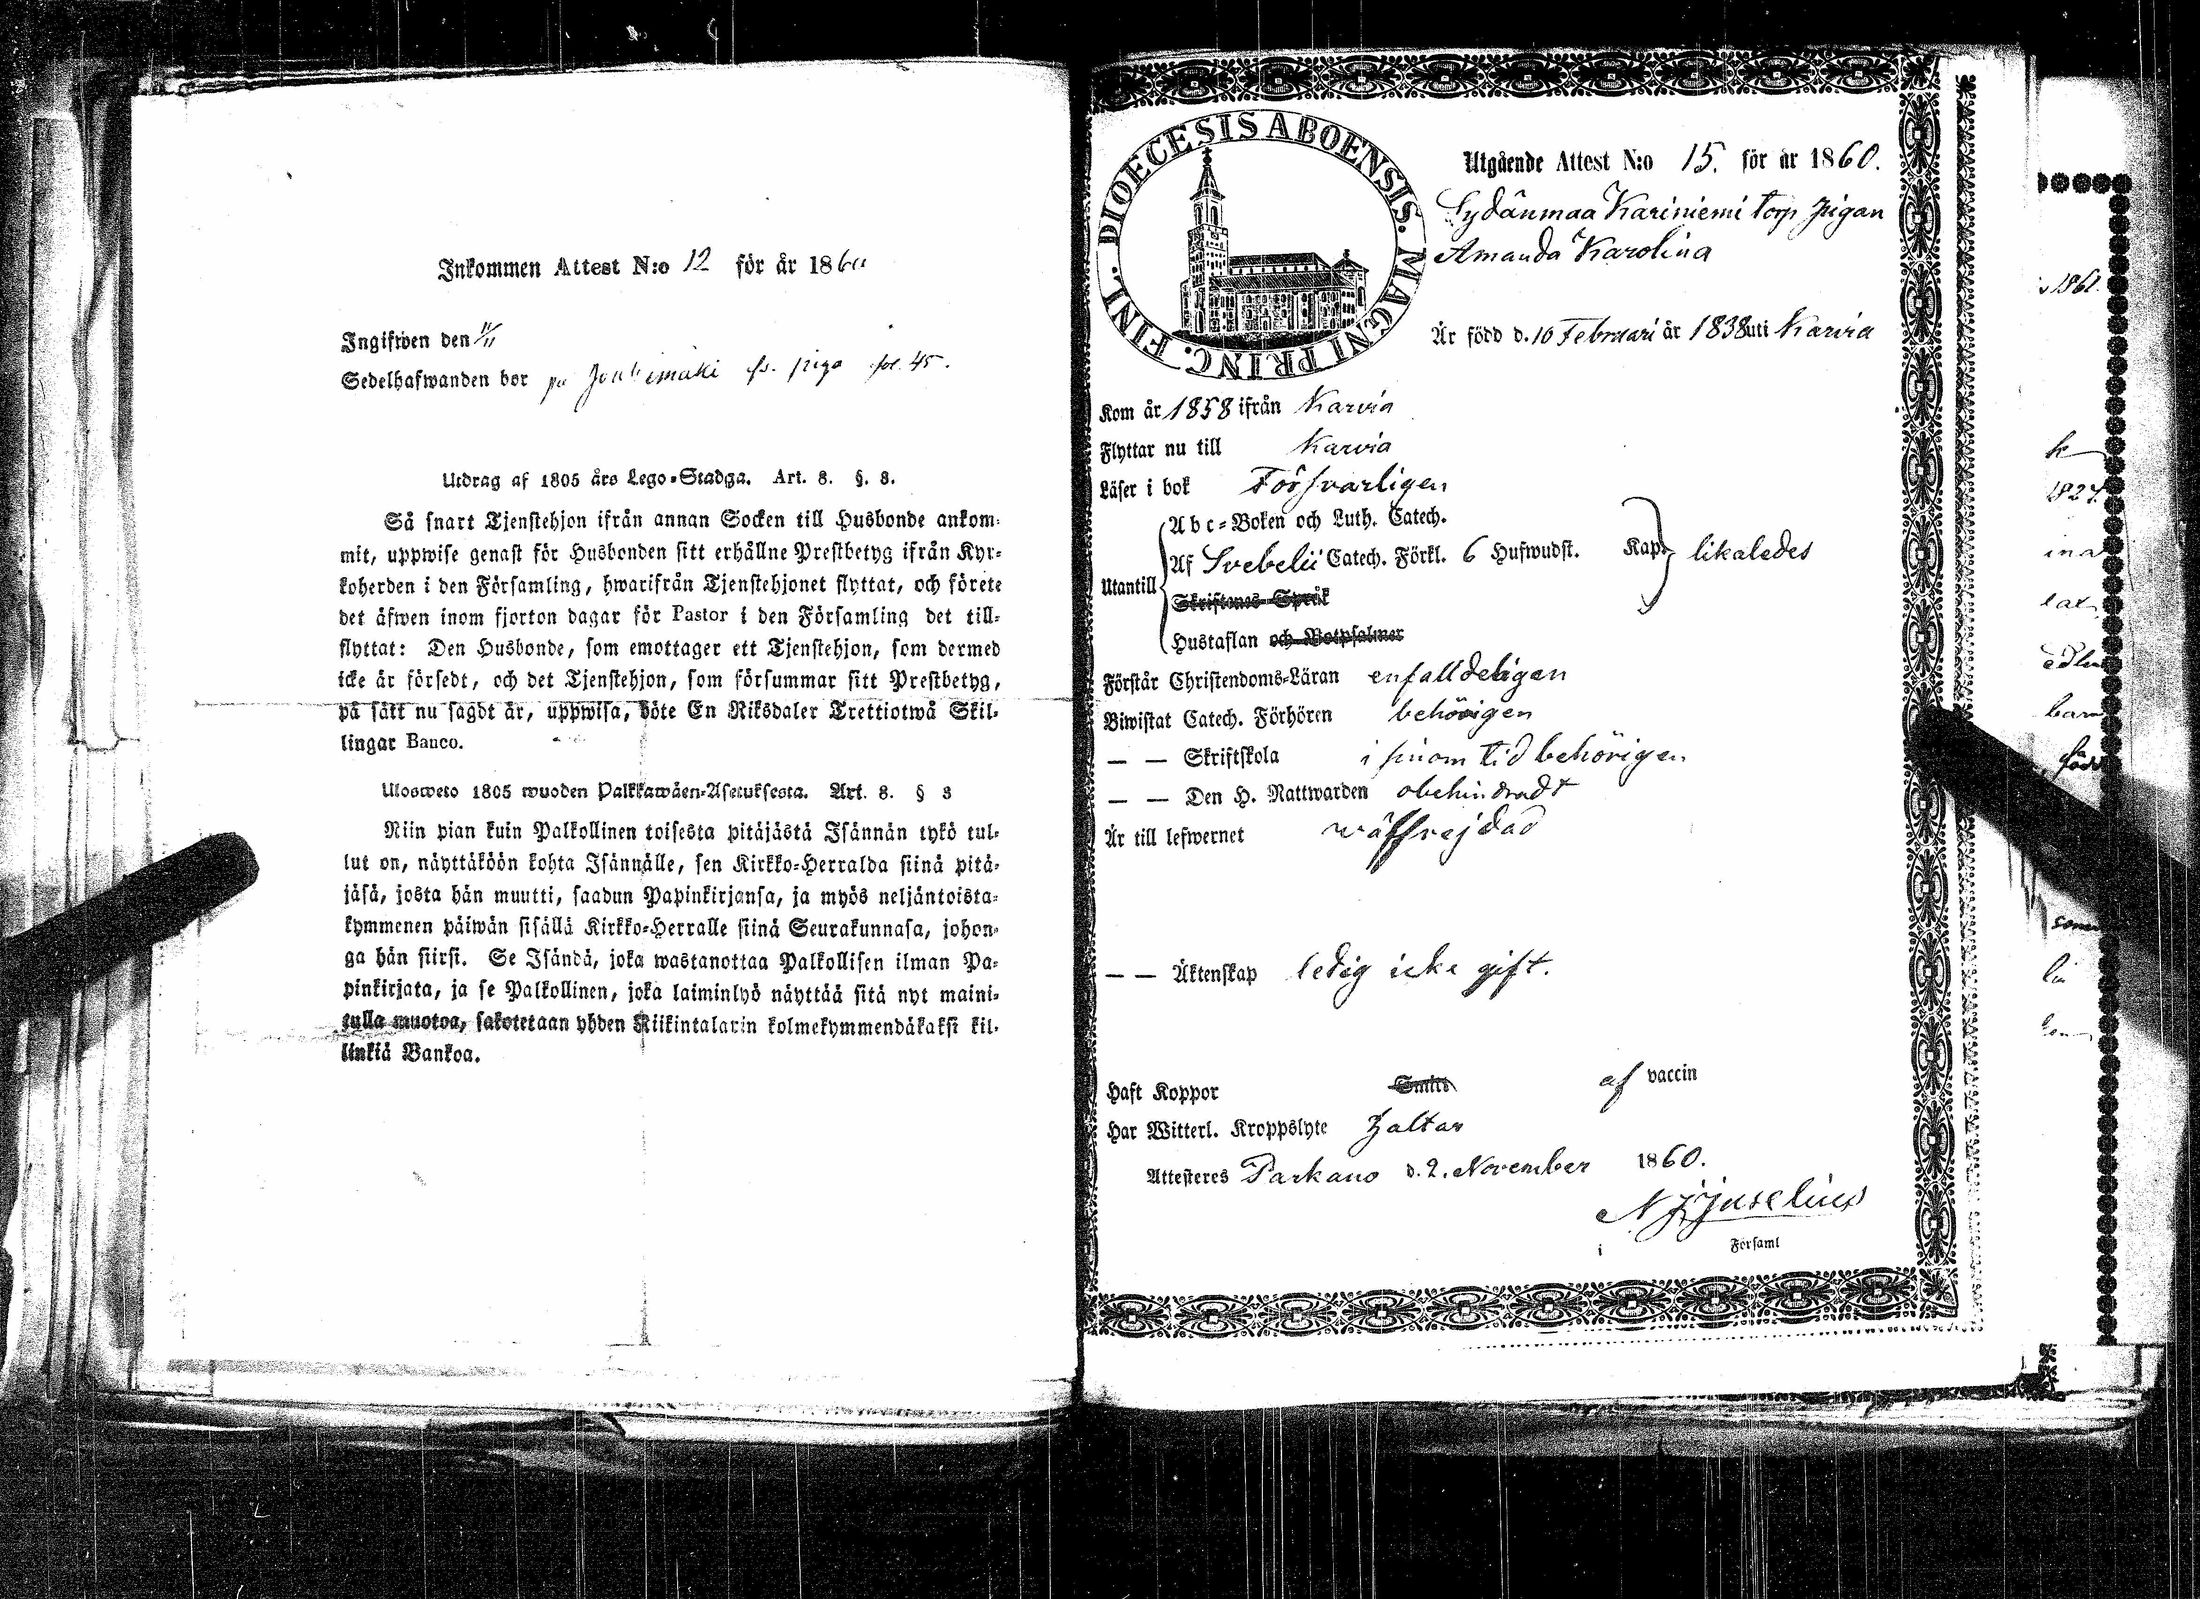 Inkommen Attest N:o 12 för år 1860
Ingifwen den 11/11
Sedelhafwanden bor på Jouhimäki piga fol. 45.
Utdrag af 1805 års Lego-Stadga. Art. 8. §. 8.
Så snart Tjenstehjon ifrån annan Socken till Husbonde ankom-
mit, uppwise genast för Husbonden sitt erhållne Prestbetyg ifrån Kyr-
koherden i den Församling, hwarifrån Tjenstehjonet flyttat, och förete
det äfwen inom fjorton dagar för Pastor i den Församling det till-
flyttat: Den Husbonde, som emottager ett Tjenstehjon, som dermed
icke är försedt, och det Tjenstehjon, som försummar sitt Prestbetyg,
på sätt nu sagdt är, uppwisa, böte En Riksdaler Trettiotwå Skil-
lingar Banco.
Ulosweto 1805 wuoden Palkkawäen-Asetuksesta. Art. 8. § 8
Niin pian kuin Palkollinen toisesta pitäjästä Isännän tykö tul-
lut on, näyttäköön kohta Isännälle, sen Kirkko-Herralda siinä pitä-
jäsä, josta hän muutti, saadun Papinkirjansa, ja myös neljäntoista-
kymmenen päiwän sisällä Kirkko-Herralle siinä Seurakunnasa, johon-
ga hän siirsi. Se Isändä, joka wastanottaa Palkollisen ilman Pa-
pinkirjata, ja se Palkollinen, joka laiminlyö näyttää sitä nyt maini-
tulla muotoa, sakotetaan yhden Riikintalarin kolmekymmendäkaksi kil-
linkiä Bankoa.
DIOECESIS ABOENSIS. MAGNI PRINC. FINL.
Utgående Attest N:o 15. för år 1860.
Sydänmaa Kariniemi torp pigan
Amanda Karolina
Är född d. 10 Februari år 1838 uti Karvia
Kom år 1858 ifrån Karvia
Flyttar nu till Karvia
Läser i bok Försvarligen
Utantill
Abc-Boken och Luth. Catech.
Af Svebelii Catech. Förkl. 6 Hufwudst. Kap. likaledes
Skriftenes Språk
Hustaflan och Botpsalmer
Förstår Christendoms-Läran enfalldeligen
Biwistat Catech. Förhören behörigen
— — Skriftskola i sinom tid behörigen
— — Den H. Nattwarden obehindradt
Är till lefwernet wälfrejdad
— — Äktenskap ledig icke gift.
Haft Koppor Smitt af vaccin
Har Witterl. Kroppslyte haltar
Attesteres Parkano d. 2. November 1860.
N J Juselius
i Församl